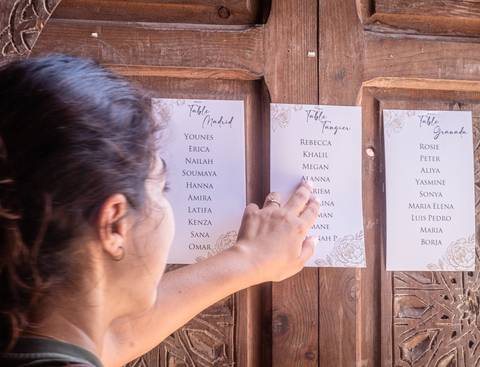 Table
Madrid
YOUNES
ERICA
NAILAH
SOUMAYA
HANNA
AMIRA
LATIFA
KENZA
SANA
OMAR
Table
Tangier
REBECCA
KHALIL
MEGAN
Table
Granada
ROSIE
PETER
ALIYA
YASMINE
SONYA
MARIA ELENA
LUIS PEDRO
MARIA
BORJA